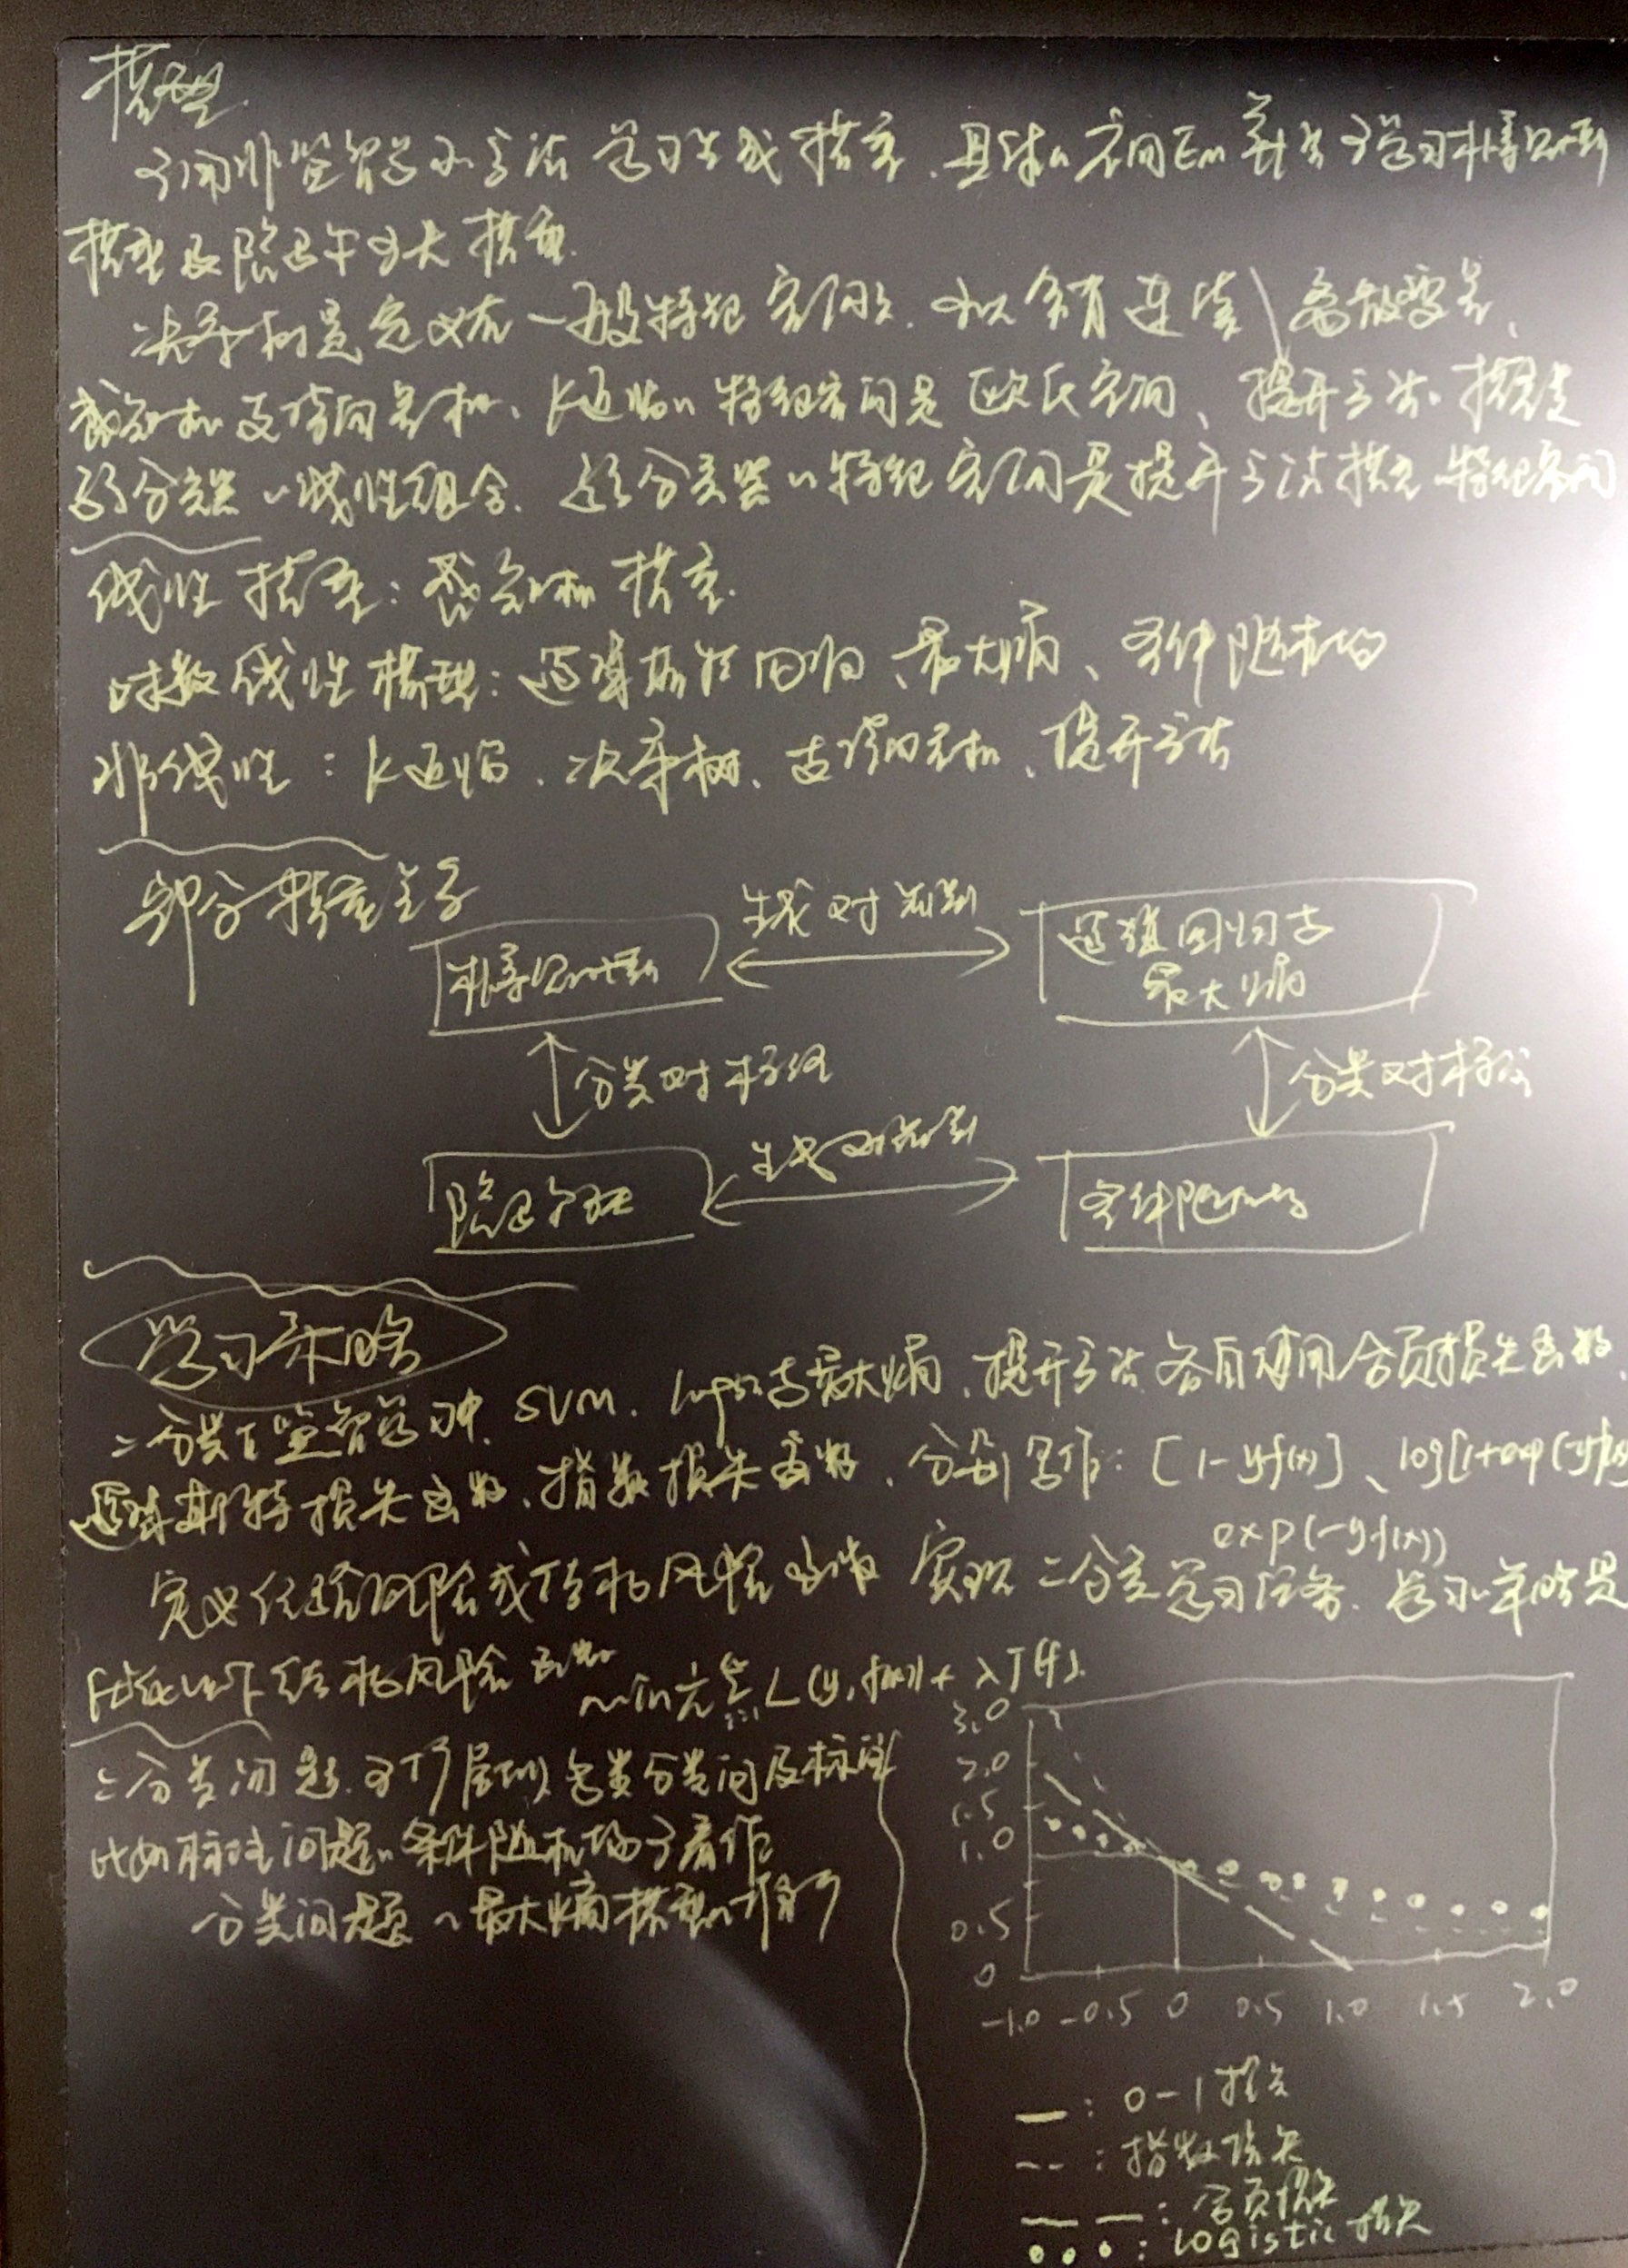 模型
可用非监督学习方法学习生成模型、具体的应用EM算法可学习朴素贝叶斯
模型及隐马尔可夫模型.
决策树是定义在一般特征空间的、可以含有连续\离散变量、
感知机支持向量机、k近邻的特征空间是欧氏空间、提升方法的模型是
弱分类器的线性组合. 弱分类器的特征空间是提升方法模型的特征空间
线性模型：感知机模型.
对数线性模型：逻辑斯特回归、最大熵、条件随机场
非线性：k近邻、决策树、支持向量机、提升方法
部分模型关系
生成对判别
朴素贝叶斯
逻辑回归与
最大熵
分类对标注
分类对标注
生成对判别
隐马尔可夫
条件随机场
学习策略
二分类的监督学习中、SVM、logistic与最大熵、提升方法各自使用合页损失函数、
逻辑斯特损失函数、指数损失函数、分别写作：[1-yf(x)]、log[1+exp(-yf(x)
exp(-yf(x))
定义经验风险或结构风险函数 实现二分类学习任务. 学习的策略是
结构风险函数 min 1/N Σ i=1 L(y,f(x))+λJ(f).
二分类问题、可扩展到多类分类问题及标注
比如标注问题的条件随机场可看作
分类问题的最大熵模型的推广
3.0
2.0
1.5
1.0
0.5
0
-1.0 -0.5 0 0.5 1.0 1.5 2.0
：0-1损失
：指数损失
：合页损失
：logistic损失